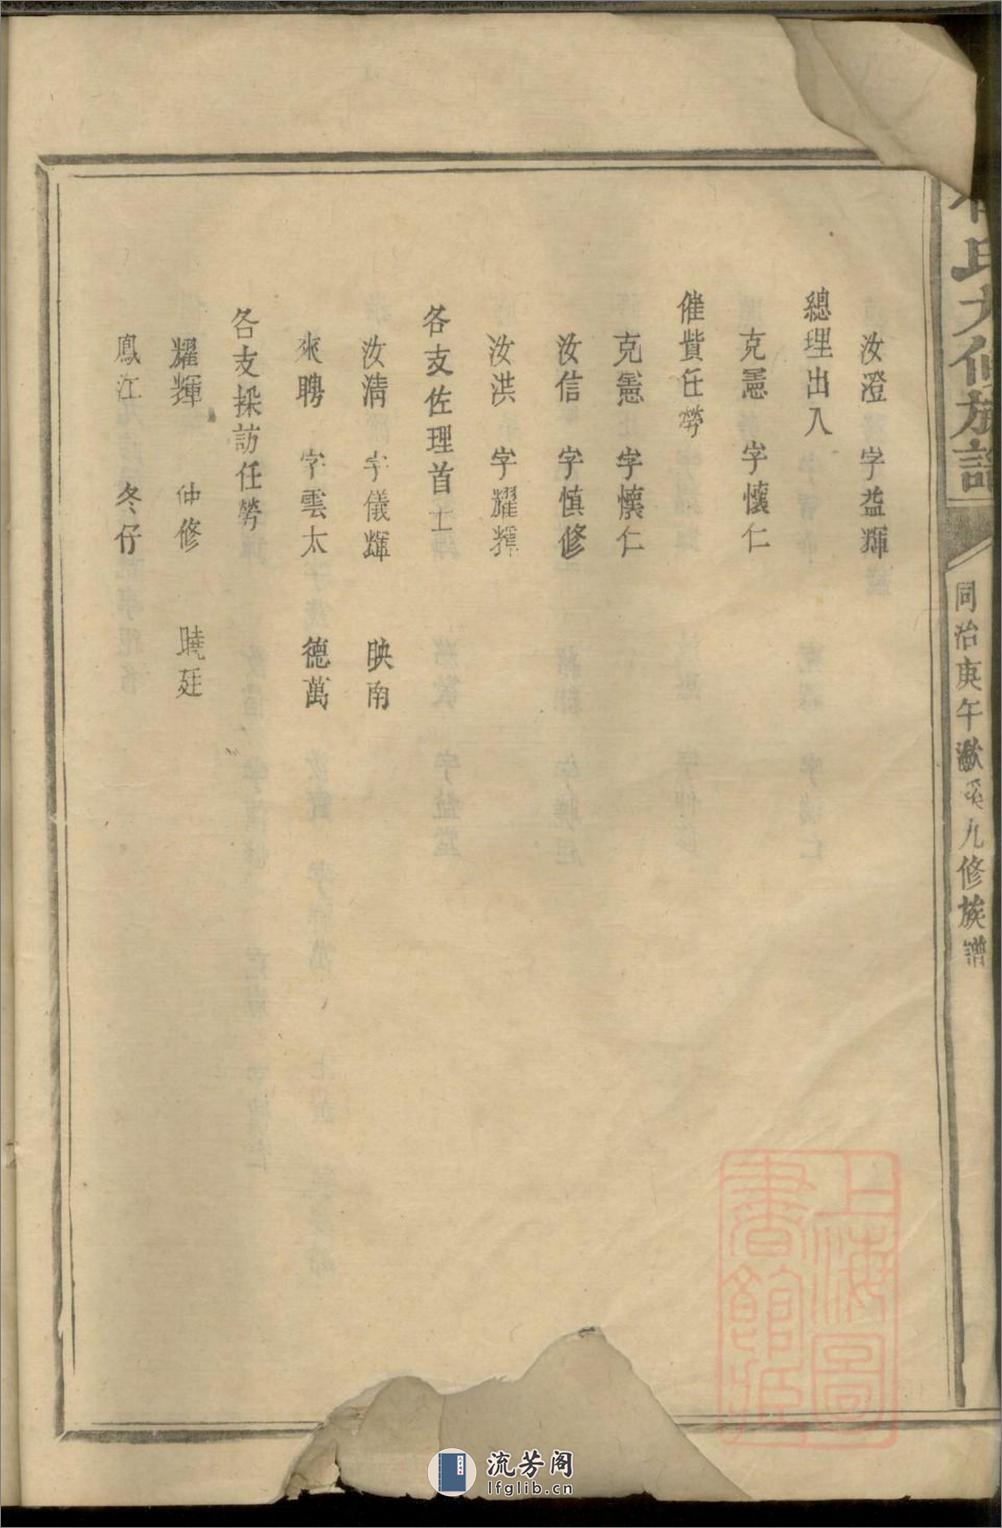 氏九修族譜
同治庚午漱溪九修族譜
汝澄 字益輝
總理出入
克憲 字懷仁
催貲任勞
克憲 字懷仁
汝信 字慎修
汝洪 字耀輝
各支佐理首士
汝清 字儀輝 映南
來聘 字雲太 德萬
各支採訪任勞
耀輝 仲修 曉廷
鳳江 冬仔
上海圖書館藏
流芳阁
lfglib.cn